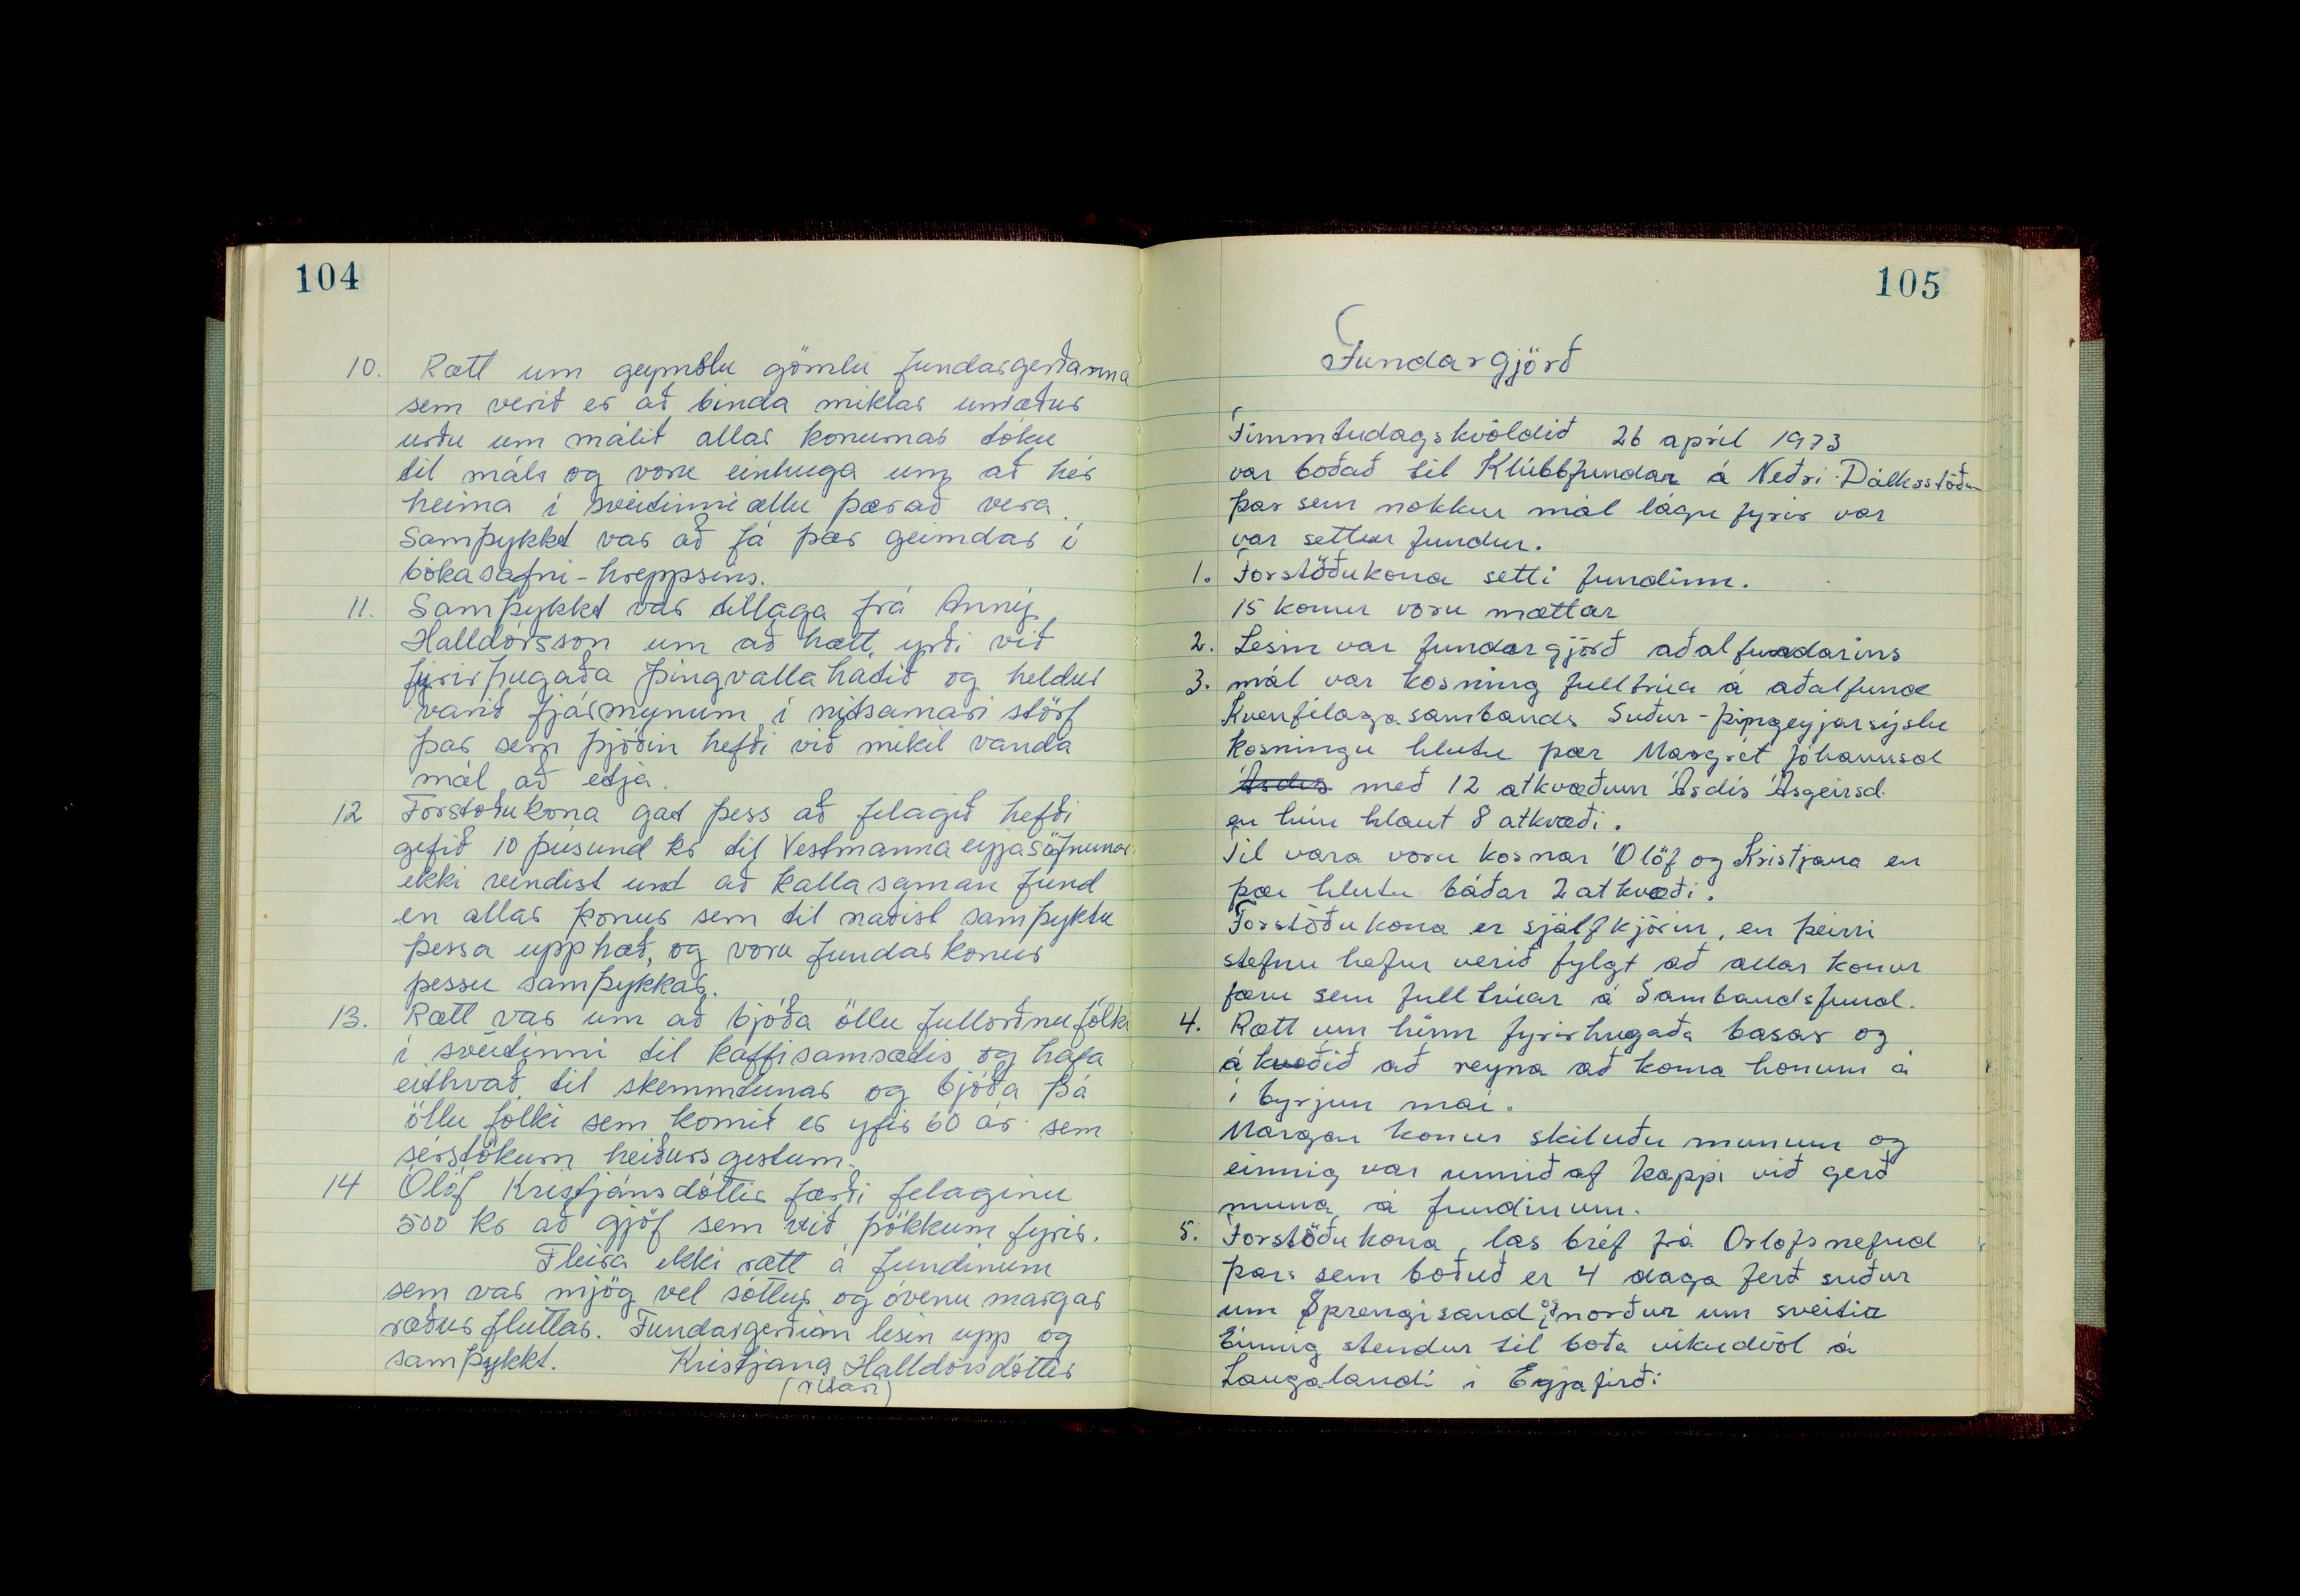 104
10. Rætt um geymslu gömlu fundargerðanna
sem verið er að binda miklar umræður
urðu um málið allar konurnar tóku
til máls og voru einhuga um að hér
heima í sveitinni ættu þær að vera.
Samþykkt var að fá þær geimdar í
bókasafni-hreppsins.
11. Samþykkt var tillaga frá Anný
Halldórsson um að hætt yrði við
fyrirhugaða Þingvallahátíð og heldur
varið fjármunum í nytsamari störf
þar sem þjóðin hefði við mikil vanda
mál að etja.
12 Forstöðukona gat þess að félagið hefði
gefið 10 þúsund kr til Vestmannaeyjasöfnunar
ekki reindist unt að kalla saman fund
en allar konur sem til naðist samþyktu
þessa upphæð, og voru fundarkonur
þessu samþykkar.
13. Rætt var um að bjóða öllu fullorðnu fólki
í sveitinni til kaffisamsætis og hafa
eithvað til skemmtunar og bjóða þá
öllu fólki sem komið er yfir 60 ár sem
sérstökum heiðursgestum.
14 Ólöf Kristjánsdóttir færði félaginu
500 kr að gjöf sem við þökkum fyrir.
Fleira ekki rætt á fundinum
sem var mjög vel sóttur og óvenu margar
ræður fluttar. Fundargerðin lesin upp og
samþykkt. Kristjana Halldórsdóttir
(ritari)
105
Fundargjörð
Fimmtudagskvöldið 26 apríl 1973
var boðað til Klúbbfundar á Neðri-Dálksstöðum
þar sem nokkur mál lágu fyrir var
var settur fundur.
1. Forstöðukona setti fundinn.
15 konur voru mættar
2. Lesin var fundargjörð aðalfundarins
3. mál var kosning fulltrúa á aðalfund
Kvenfélagasambands Suður-Þingeyjarsýslu
kosningu hlutu þær Margrét Jóhannsd
Ásdís með 12 atkvæðum Ásdís Ásgeirsd.
en hún hlaut 8 atkvæði.
Til vara voru kosnar Ólöf og Kristjana en
þær hlutu báðar 2 atkvæði.
Forstöðukona er sjálfkjörin, en þeirri
stefnu hefur verið fylgt að allar konur
færu sem fulltrúar á Sambandsfund.
4. Rætt um hinn fyrirhugaða basar og
ákveðið að reyna að koma honum á
í byrjun maí.
Margar konur skiluðu munum og
einnig var unnið af kappi við gerð
muna á fundinum.
5. Forstöðukona, las bréf frá Orlofsnefnd
þar sem boðuð er 4 daga ferð suður
um Sprengisand og norður um sveitir
Einnig stendur til boða vikudvöl á
Laugalandi í Eyjafirði